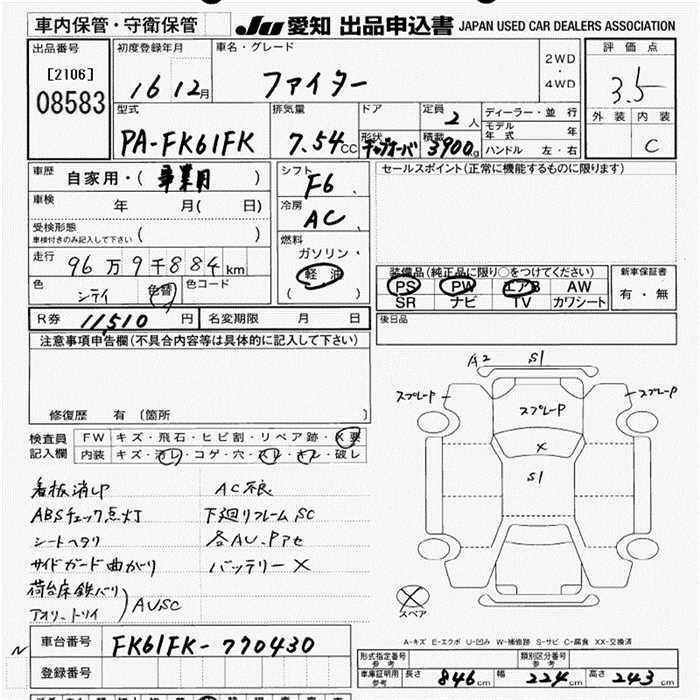 車内保管・守衛保管 JU 愛知 出品申込書 JAPAN USED CAR DEALERS ASSOCIATION
出品番号 初度登録年月 車名・グレード 2WD・4WD 評価点
[2106]
08583 16 12月 ファイター 3.5
型式 排気量 ドア 定員 2人 ディーラー・並行 外装 内装
PA-FK61FK 7.54cc 形状 積載 3900kg モデル年式 年 C
ハンドル 左・右
車歴 自家用・(事業用) シフト F6 セールスポイント(正常に機能するものに限ります)
車検 年 月(日) 冷房 AC
受検形態
車検付きのみ記入して下さい ( ) 燃料
走行 96万9千884km ガソリン・軽油 装備品(純正品に限り○をつけてください) 新車保証書
色 シティ 色替 色コード ( ) PS PW エアB AW 有・無
SR ナビ TV カワシート
R券 11,510円 名変期限 月 日 後日品
注意事項申告欄(不具合内容等は具体的に記入して下さい)
修復歴 有(箇所 )
検査員記入欄 FW キズ・飛石・ヒビ割・リペア跡・X要
内装 キズ・汚レ・コゲ・穴・スレ・キレ・破レ
A2 S1
スプレーP スプレーP スプレーP
X
S1
看板消シP AC不良
ABSチェック点灯 下廻リフレームSC
シートヘタリ 各AU.Pアセ
サイドガード曲がり バッテリーX
荷台床鉄バリ
アオリ.トリイ )AUSC
スペア
A-キズ E-エクボ U-凹み W-補修跡 S-サビ C-腐食 XX-交換済
N 車台番号 FK61FK-770430
登録番号
形式指定番号 参考 類別区分番号 参考
車庫証明用参考 長さ 846cm 幅 224cm 高さ 243cm